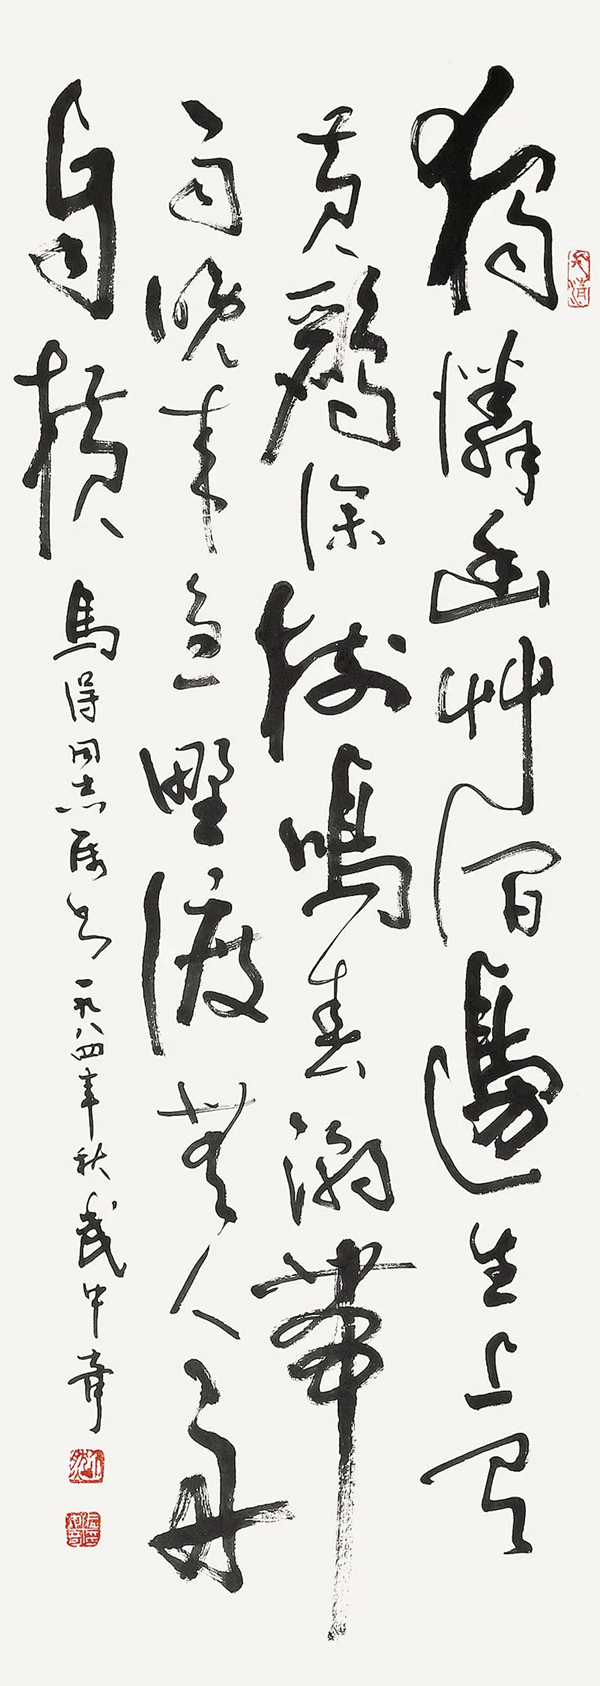 獨憐幽艸澗邊生上有
黄鸝深樹鳴春潮帶
雨晚来急野渡無人舟
自橫 馬得同志属书 一九八四年秋 武中奇